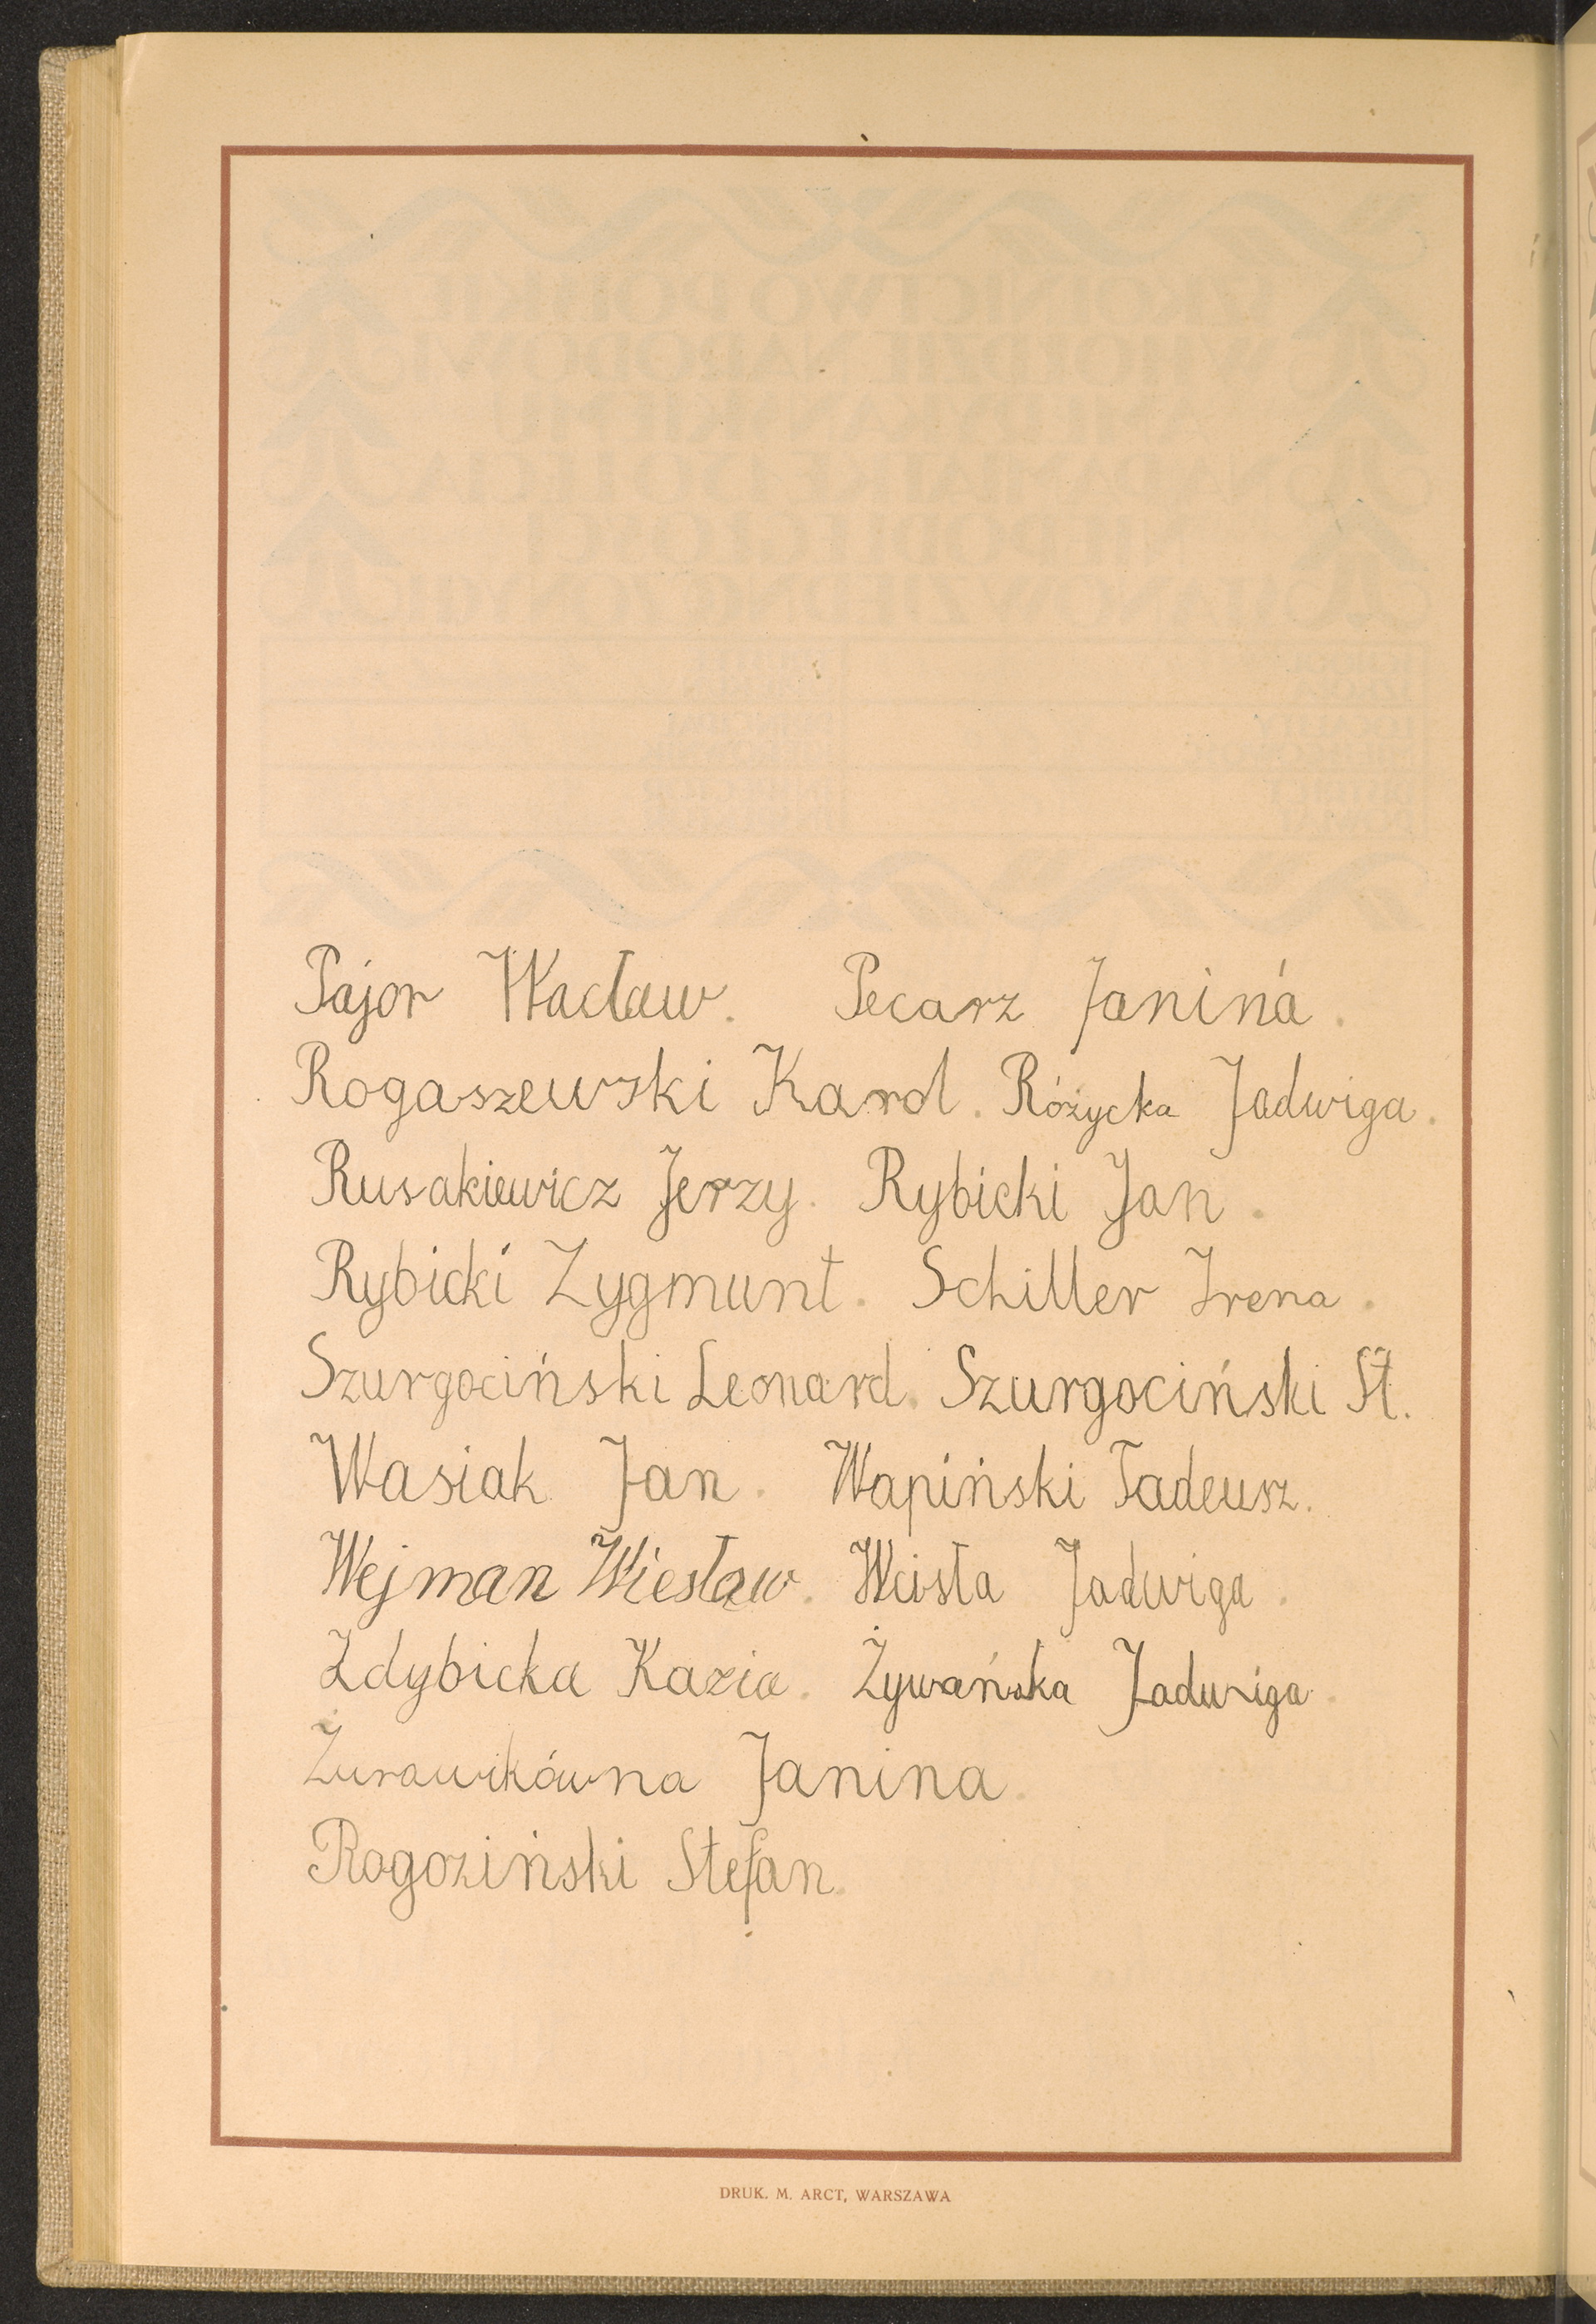 Pajor Wacław. Pecarz Janina.
Rogaszewski Karol. Różycka Jadwiga.
Rusakiewicz Jerzy. Rybicki Jan.
Rybicki Zygmunt. Schiller Irena.
Szurgociński Leonard. Szurgociński St.
Wasiak Jan. Wapiński Tadeusz.
Wejman Wiesław. Weisła Jadwiga.
Zdybicka Kazia. Żywańska Jadwiga.
Żurawikówna Janina.
Rogoziński Stefan.
DRUK. M. ARCT, WARSZAWA